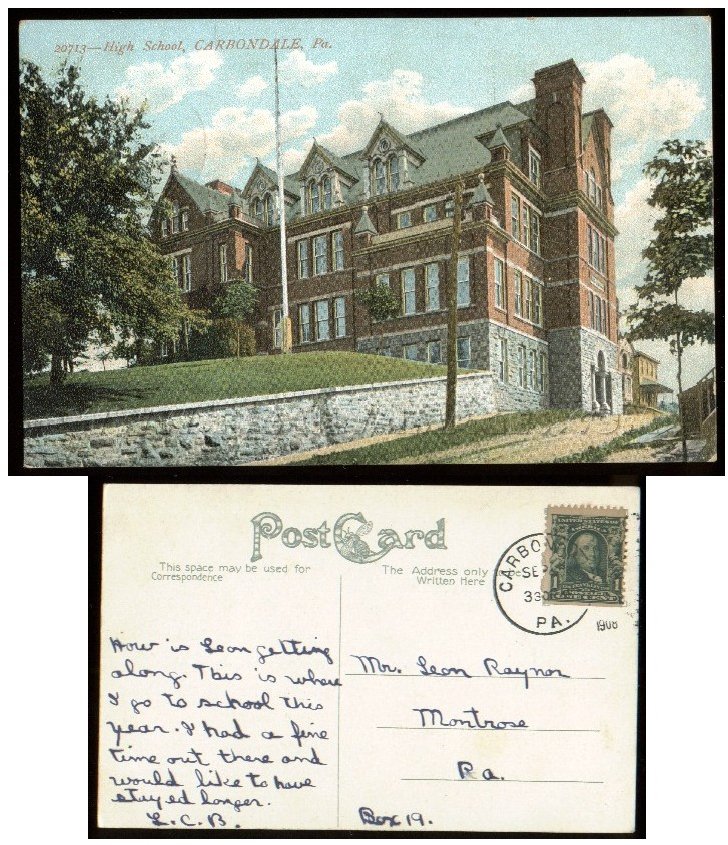 20713—High School, CARBONDALE, Pa.
Post Card
This space may be used for
Correspondence
The Address only to be
Written Here
CARBON
SE
330
PA.
1908
UNITED STATES OF
1
ONE CENT
1
How is Leon getting
along. This is where
I go to school this
year. I had a fine
time out there and
would like to have
stayed longer.
L.C.B.
Mr. Leon Raynor
Montrose
Pa.
Box 19.